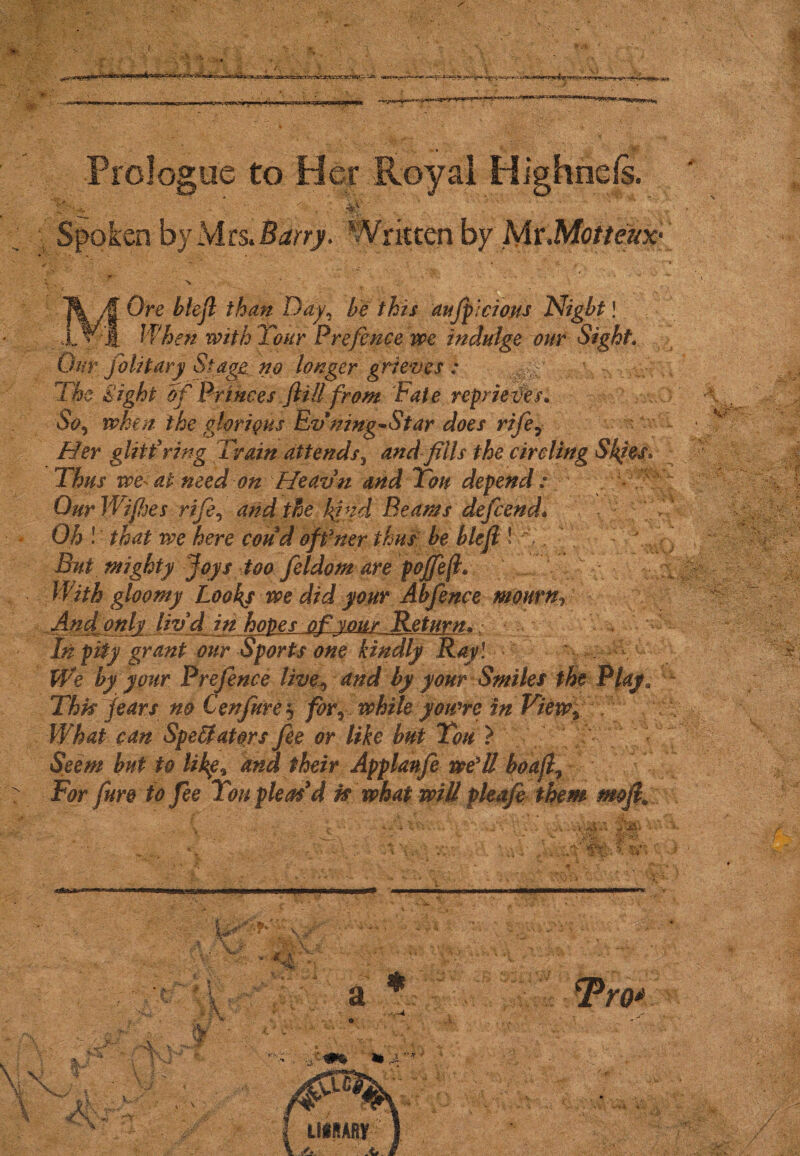 Prologue to Her Royal Highneſs.
Spoken by Mrs. Barry. Written by Mr. Motteux.
MOre bleſt than Day, be this auſpicious Night!
When with Your Preſence we indulge our Sight.
Our ſolitary Stage no longer grieves:
The Sight of Princes ſtill from Fate reprieves.
So, when the glorious Ev'ning-Star does riſe,
Her glitt'ring Train attends, and fills the circling Skies.
Thus we at need on Heav'n and You depend:
Our Wiſhes riſe, and the kind Beams deſcend.
Oh! that we here cou'd oft'ner thus be bleſt!
But mighty Joys too ſeldom are poſſeſt.
With gloomy Looks we did your Abſence mourn,
And only liv'd in hopes of your Return.
In pity grant our Sports one kindly Ray!
We by your Preſence live, and by your Smiles the Play.
This fears no Cenſure; for, while you're in View,
What can Spectators ſee or like but You?
Seem but to like, and their Applauſe we'll boaſt,
For ſure to ſee You pleas'd is what will pleaſe them moſt.
a *
Pro-
LIBRARY